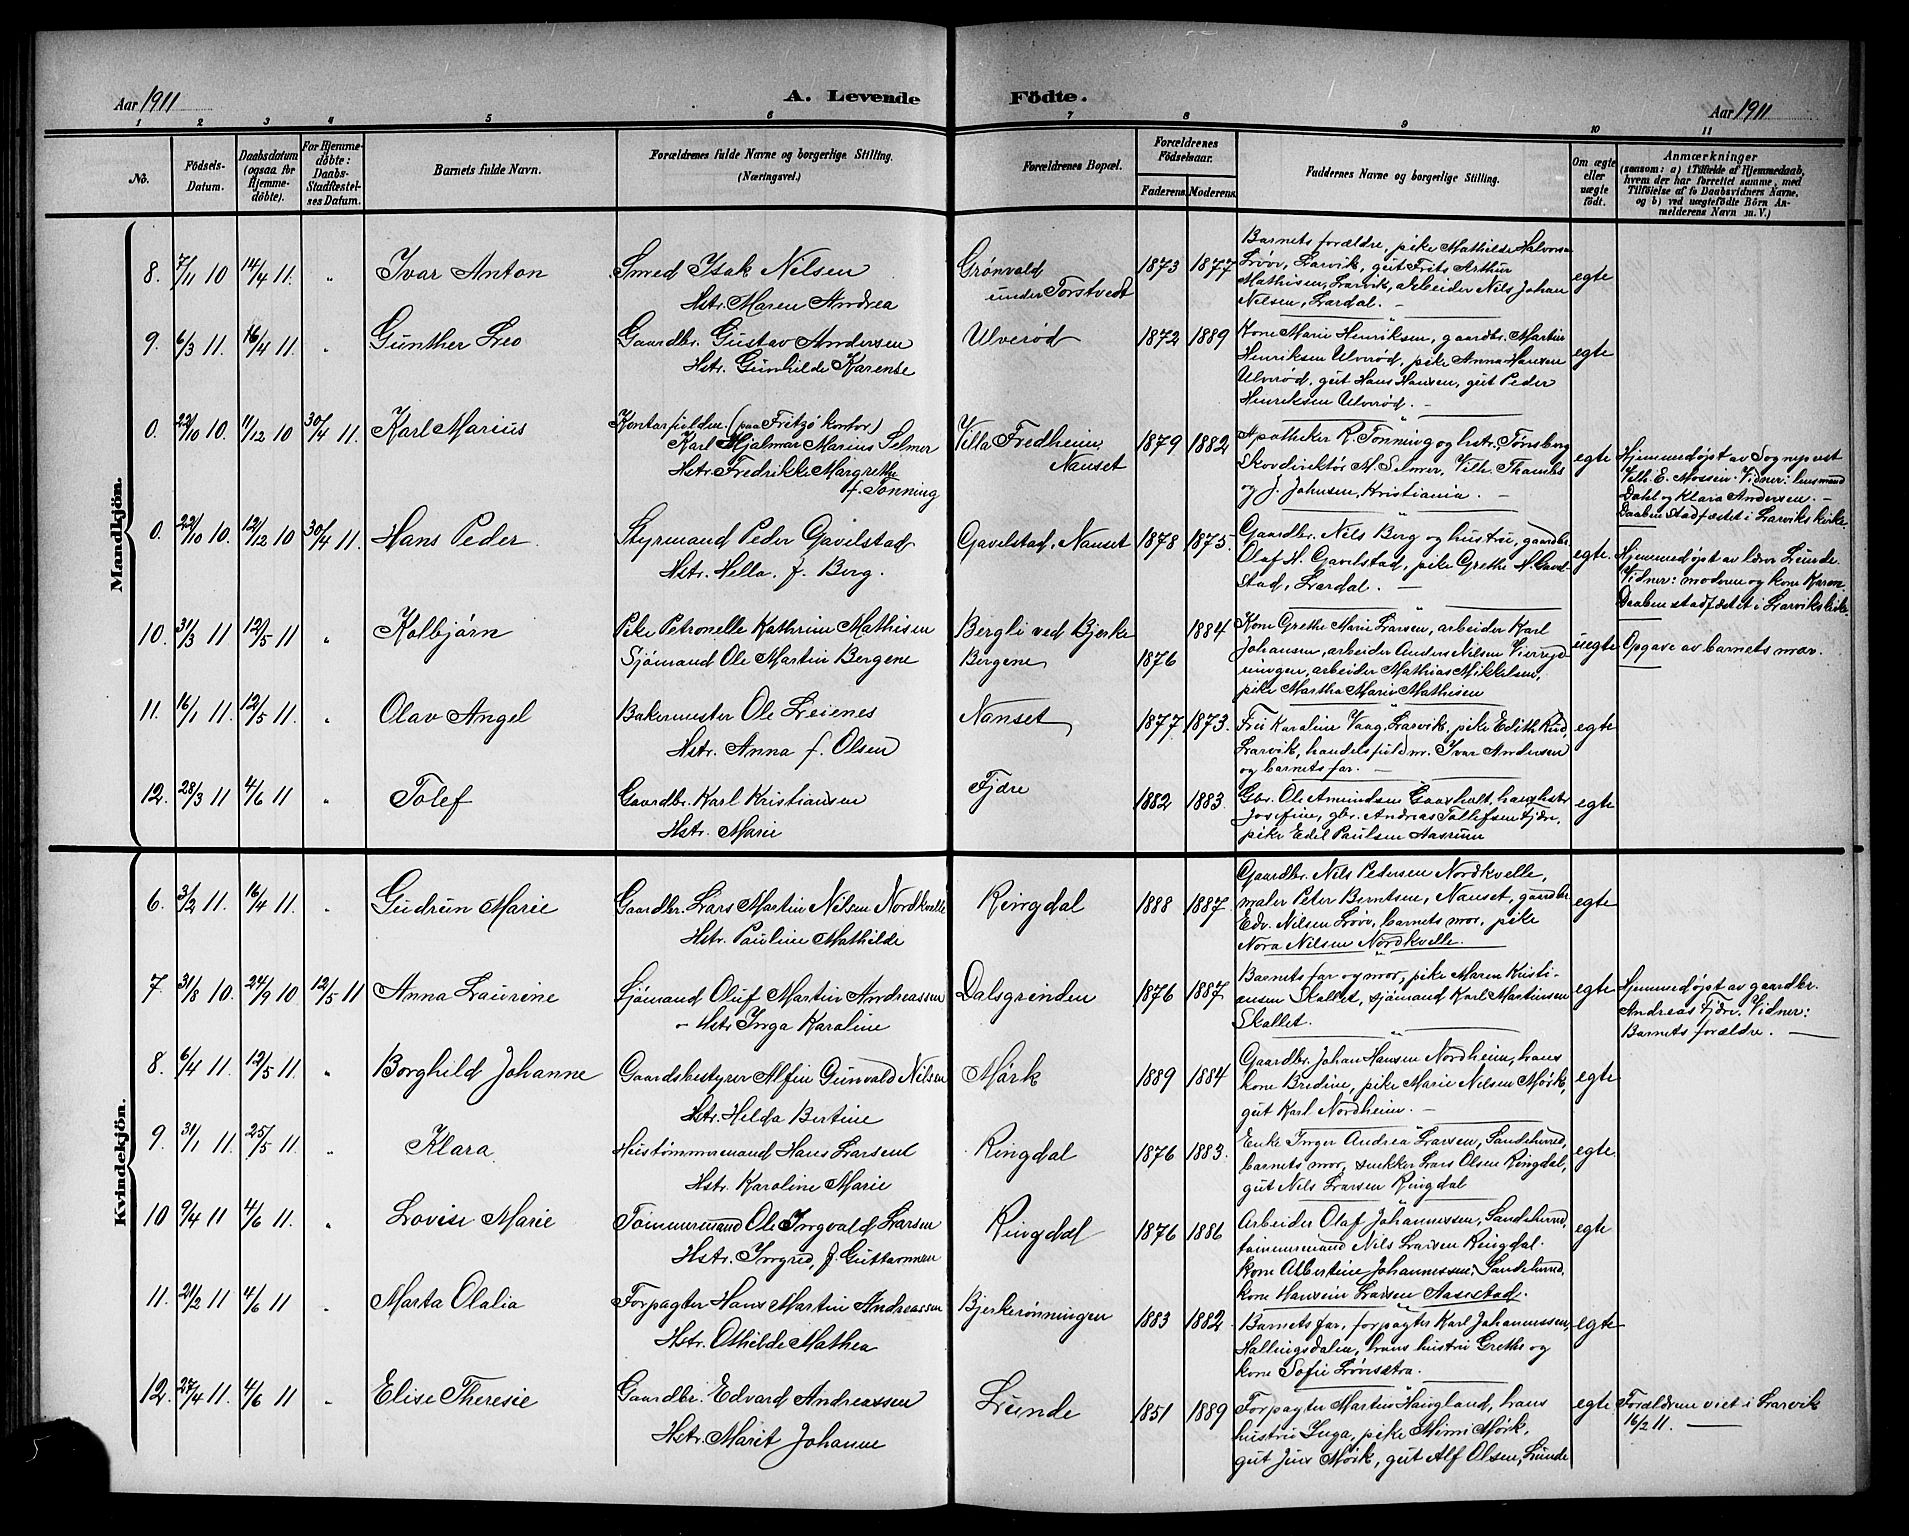 Aar 1911
A. Levende Födte.
Aar 1911
1 2 3 4 5 6 7 8 9 10 11
No.
Födsels-
Datum.
Daabsdatum
(ogsaa for
Hjemme-
döbte).
For Hjemme-
döbte:
Daabs-
Stadfæstel-
ses Datum.
Barnets fulde Navn.
Forældrenes fulde Navne og borgerlige Stilling.
(Næringsvei.)
Forældrenes Bopæl.
Forældrenes
Födselsaar.
Faderens. Moderens.
Faddernes Navne og borgerlige Stilling.
Om ægte
eller
uægte
födt.
Anmærkninger
(saasom: a) i Tilfælde af Hjemmedaab,
hvem der har forrettet samme, med
Tilföielse af to Daabsvidners Navne,
og b) ved uægtefödte Börn An-
melderens Navn m. V.)
Mandkjön.
8. 7/11 10 14/4 11. " Ivar Anton
Smed Isak Nilsen
Hstr. Maren Andrea
Grønvald
under Torstvedt
1873 1877
Barnets forældre, pike Mathilde Halvorsen
Løvø, Larvik, gut Frits Arthur
Mathisen, Larvik, arbeider Nils Johan
Nilsen, Lardal. —
egte
9. 6/3 11. 16/4 11. " Günther Leo
Gaardbr. Gustav Andersen
Hstr. Gunhilde Karense
Ulverød
1872 1889
Kone Marie Henriksen, gaardbr. Martin
Henriksen Ulverød, pike Anna Hansen
Ulverød, gut Hans Hansen, gut Peder
Henriksen Ulverød. —
egte
0. 22/10 10. 11/12 10 30/4 11. Karl Marius
Kontorfuldm. (paa Fritzø kontor)
Karl Hjalmar Marius Selmer
Hstr. Fredrikke Margrethe
f. Tonning
Villa Fredheim,
Nanset
1879 1882
Apotheker R. Tonning og hstr. Tønsberg
Skovdirektør M. Selmer, Vilh. Thambs
og J. Johnsen, Kristiania. —
egte
Hjemmedøpt av Sogneprest
Vilh. E. Mossin. Vidner: lensmand
Dahl og Klara Andersen. —
Daaben stadfæstet i Larviks kirke.
0. 22/10 10. 12/12 10 30/4 11. Hans Peder
Styrmand Peder Gavelstad
Hstr. Hella f. Berg.
Gavelstad, Nanset
1878 1875.
Gaardbr. Nils Berg og hustru, gaardbr.
Olaf H. Gavelstad, pike Grethe N. Gavel-
stad, Lardal. —
egte.
Hjemmedøpt av lærer Lunde
Vidner: moderen og kone Karen
Daaben stadfæstet i Larviks kirke
10. 31/3 11 12/5 11 " Kolbjørn
Pike Petronelle Kathrine Mathisen
Sjømand Ole Martin Bergene
Bergli ved Bjerke
Bergene
1876 1884
Kone Grethe Marie Larsen, arbeider Karl
Johansen, arbeider Anders Nilsen
arbeider Mathias Mikkelsen,
pike Martha Marie Mathisen
uegte
Opgave av barnets mor.
11. 16/1 11. 12/5 11. " Olav Angel
Bakermester Ole Leienes
Hstr. Anna f. Olsen
Nanset
1877 1873.
Frk Karoline Vaag, Larvik, pike Edith Rud,
Larvik, handelsfuldm. Ivar Andersen
og barnets far. —
egte
12. 28/3 11 4/6 11 " Tolef
Gaardbr. Karl Kristiansen
Hstr. Marie
Fjære
1882 1883.
Gbr. Ole Amundsen Gaaxholt, hans hstr
Josefine, gbr. Andreas Tollefsen Fjære,
pike Edel Paulsen Aasrum
egte
Kvindekjön.
6. 3/2 11. 16/4 11. " Gudrun Marie
Gaardbr. Lars Martin Nilsen Nordkvelle
Hstr. Pauline Mathilde
Ringdal
1888 1887.
Gaardbr. Nils Pedersen Nordkvelle,
maler Peter Berntsen, Nanset, gaardbr
Edv. Nilsen Løvø, barnets mor, pike
Nora Nilsen Nordkvelle.
egte
7. 31/8 10. 24/9 10 12/5 11 Anna Laurine
Sjømand Oluf Martin Andreassen
- Hstr Inga Karoline
Dalsgrinden
1876 1887
Barnets far og mor, pike Maren Kristi-
ansen Skallet, sjømand Karl Martinsen
Skallet.
egte
Hjemmedøpt av gaardbr.
Andreas Fjære. Vidner:
Barnets forældre. —
8. 6/4 11. 12/5 11. " Borghild Johanne
Gaardsbestyrer Alfin Gunvald Nilsen
Hstr. Helda Bertine
Mørk
1889 1884
Gaardbr. Johan Hansen Nordheim, hans
kone Bredine, pike Marie Nilsen Mørk,
gut Karl Nordheim. —
egte
9. 31/1 11 25/5 11. " Klara
Hustømmermand Hans Larsen
Hstr. Karoline Marie
Ringdal
1876 1883.
Enke Inger Andrea Larsen, Sandeherred,
barnets mor, snekker Lars Olsen Ringdal,
gut Nils Larsen Ringdal
egte.
10 9/4 11 4/6 11. " Lovise Marie
Tømmermand Ole Ingvald Larsen
Hstr. Ingrid, f. Guttormsen
Ringdal
1876 1886
Arbeider Olaf Johannessen, Sandeherred,
tømmermand Nils Larsen Ringdal.
kone Albertine Johannessen, Sandeherred,
kone Hansine Larsen Aasestad.
egte
11. 21/2 11 4/6 11 " Marta Olalia
Forpagter Hans Martin Andreassen
Hstr. Othilde Mathea
Bjerkerønningen
1883 1882.
Barnets far, forpagter Karl Johannessen,
Hallingsdalen, hans hustru Grethe og
kone Sofie Løvisetra.
egte
12. 27/4 11. 4/6 11 " Elise Theresie
Gaardbr. Edvard Andreassen
Hstr. Marit Johanne
Lunde
1851 1889
Forpagter Martin Haugland, hans
hustru Inga, pike Mimi Mørk,
gut Jens Mørk, gut Alf Olsen, Lunde
egte
Forældrene viet i Larvik
16/2 11. —
5